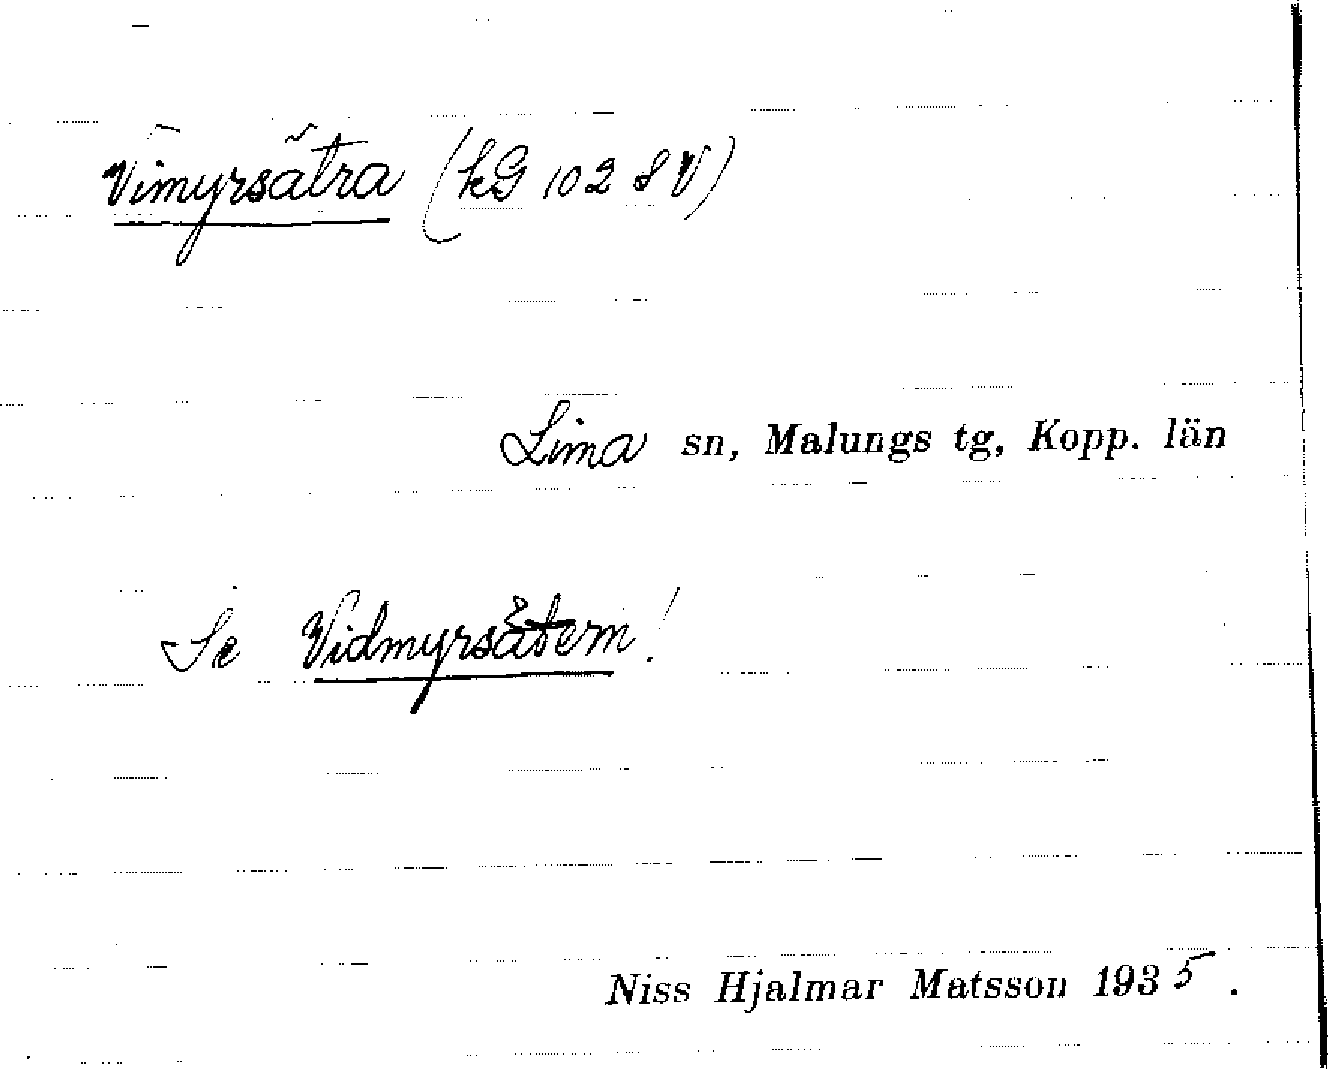 Vimyrsätra (kG 102 SV)
Lima sn, Malungs tg, Kopp. län
Se Vidmyrsätern!
Niss Hjalmar Matsson 1935.